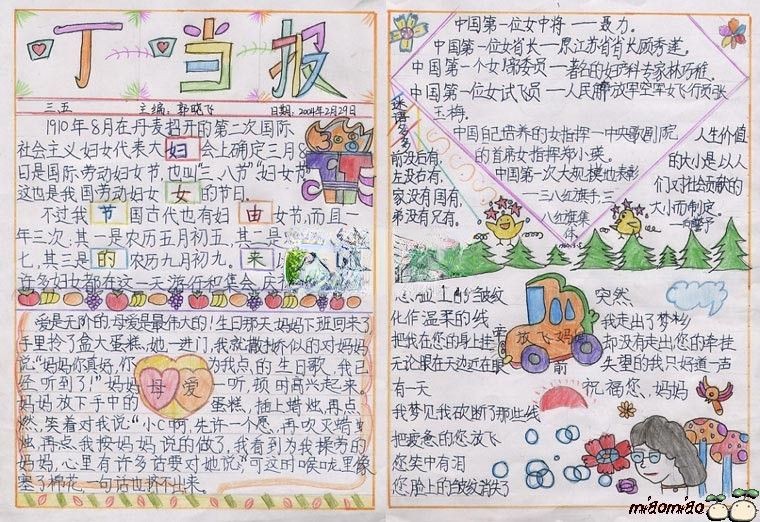 叮当报
三五 主编:郭晓飞 日期:2004年2月29日
1910年8月在丹麦招开的第二次国际
社会主义妇女代表大 妇 会上确定三月8
日是国际劳动妇女节,也叫"三八节""妇女节"
这也是我国劳动妇女 女 的节日。
不过我 节 国古代也有妇 由 女节,而且一
年三次:其一是农历五月初五,其二是
七,其三是 的 农历九月初九。 来
许多妇女都在这一天游行和集会,庆
爱是无价的,母爱是最伟大的!生日那天,妈妈下班回来了,
手里拎了盒大蛋糕,她一进门,我就撒娇似的对妈妈
说:"妈妈你真好,你 为我点的生日歌,我已
经听到了!"妈妈 母爱 一听,顿时高兴起来。
妈妈放下手中的 蛋糕,插上蜡烛,再点
燃,笑着对我说:"小C啊,先许一个愿,再吹灭蜡
烛,再点我按妈妈说的做了,我看到为我操劳的
妈妈,心里有许多话要对她说?可这时喉咙里像
塞了棉花,一句话也挤不出来。
中国第一位女中将——聂力。
中国第一位女省长——原江苏省省长顾秀莲。
中国第一个女 席委员——著名的妇产科专家林巧稚。
中国第一位女试飞员——人民解放军空军女飞行员张
玉梅。
中国自己培养的女指挥——中央歌剧院
的首席女指挥郑小英。
中国第一次大规模地表彰
——三八红旗手,三
八红旗集
体
谜语多多
前没后有,
左没右有,
家没有国有,
弟没有兄有。
人生价值
的大小是以人
们对社会贡献的
大小而制定。
——向警予
心血上的皱纹
化作温柔的线
把我在您的身上挂牵
无论眼在天边近在眼前
有一天
我梦见我砍断了那些线
把疲惫的您放飞
您笑中有泪
您脸上的皱纹消失了
放飞妈妈
突然,
我走出了梦杉
却没有走出您的牵挂
失望的我只好道一声
祝福您,妈妈
miaomiao